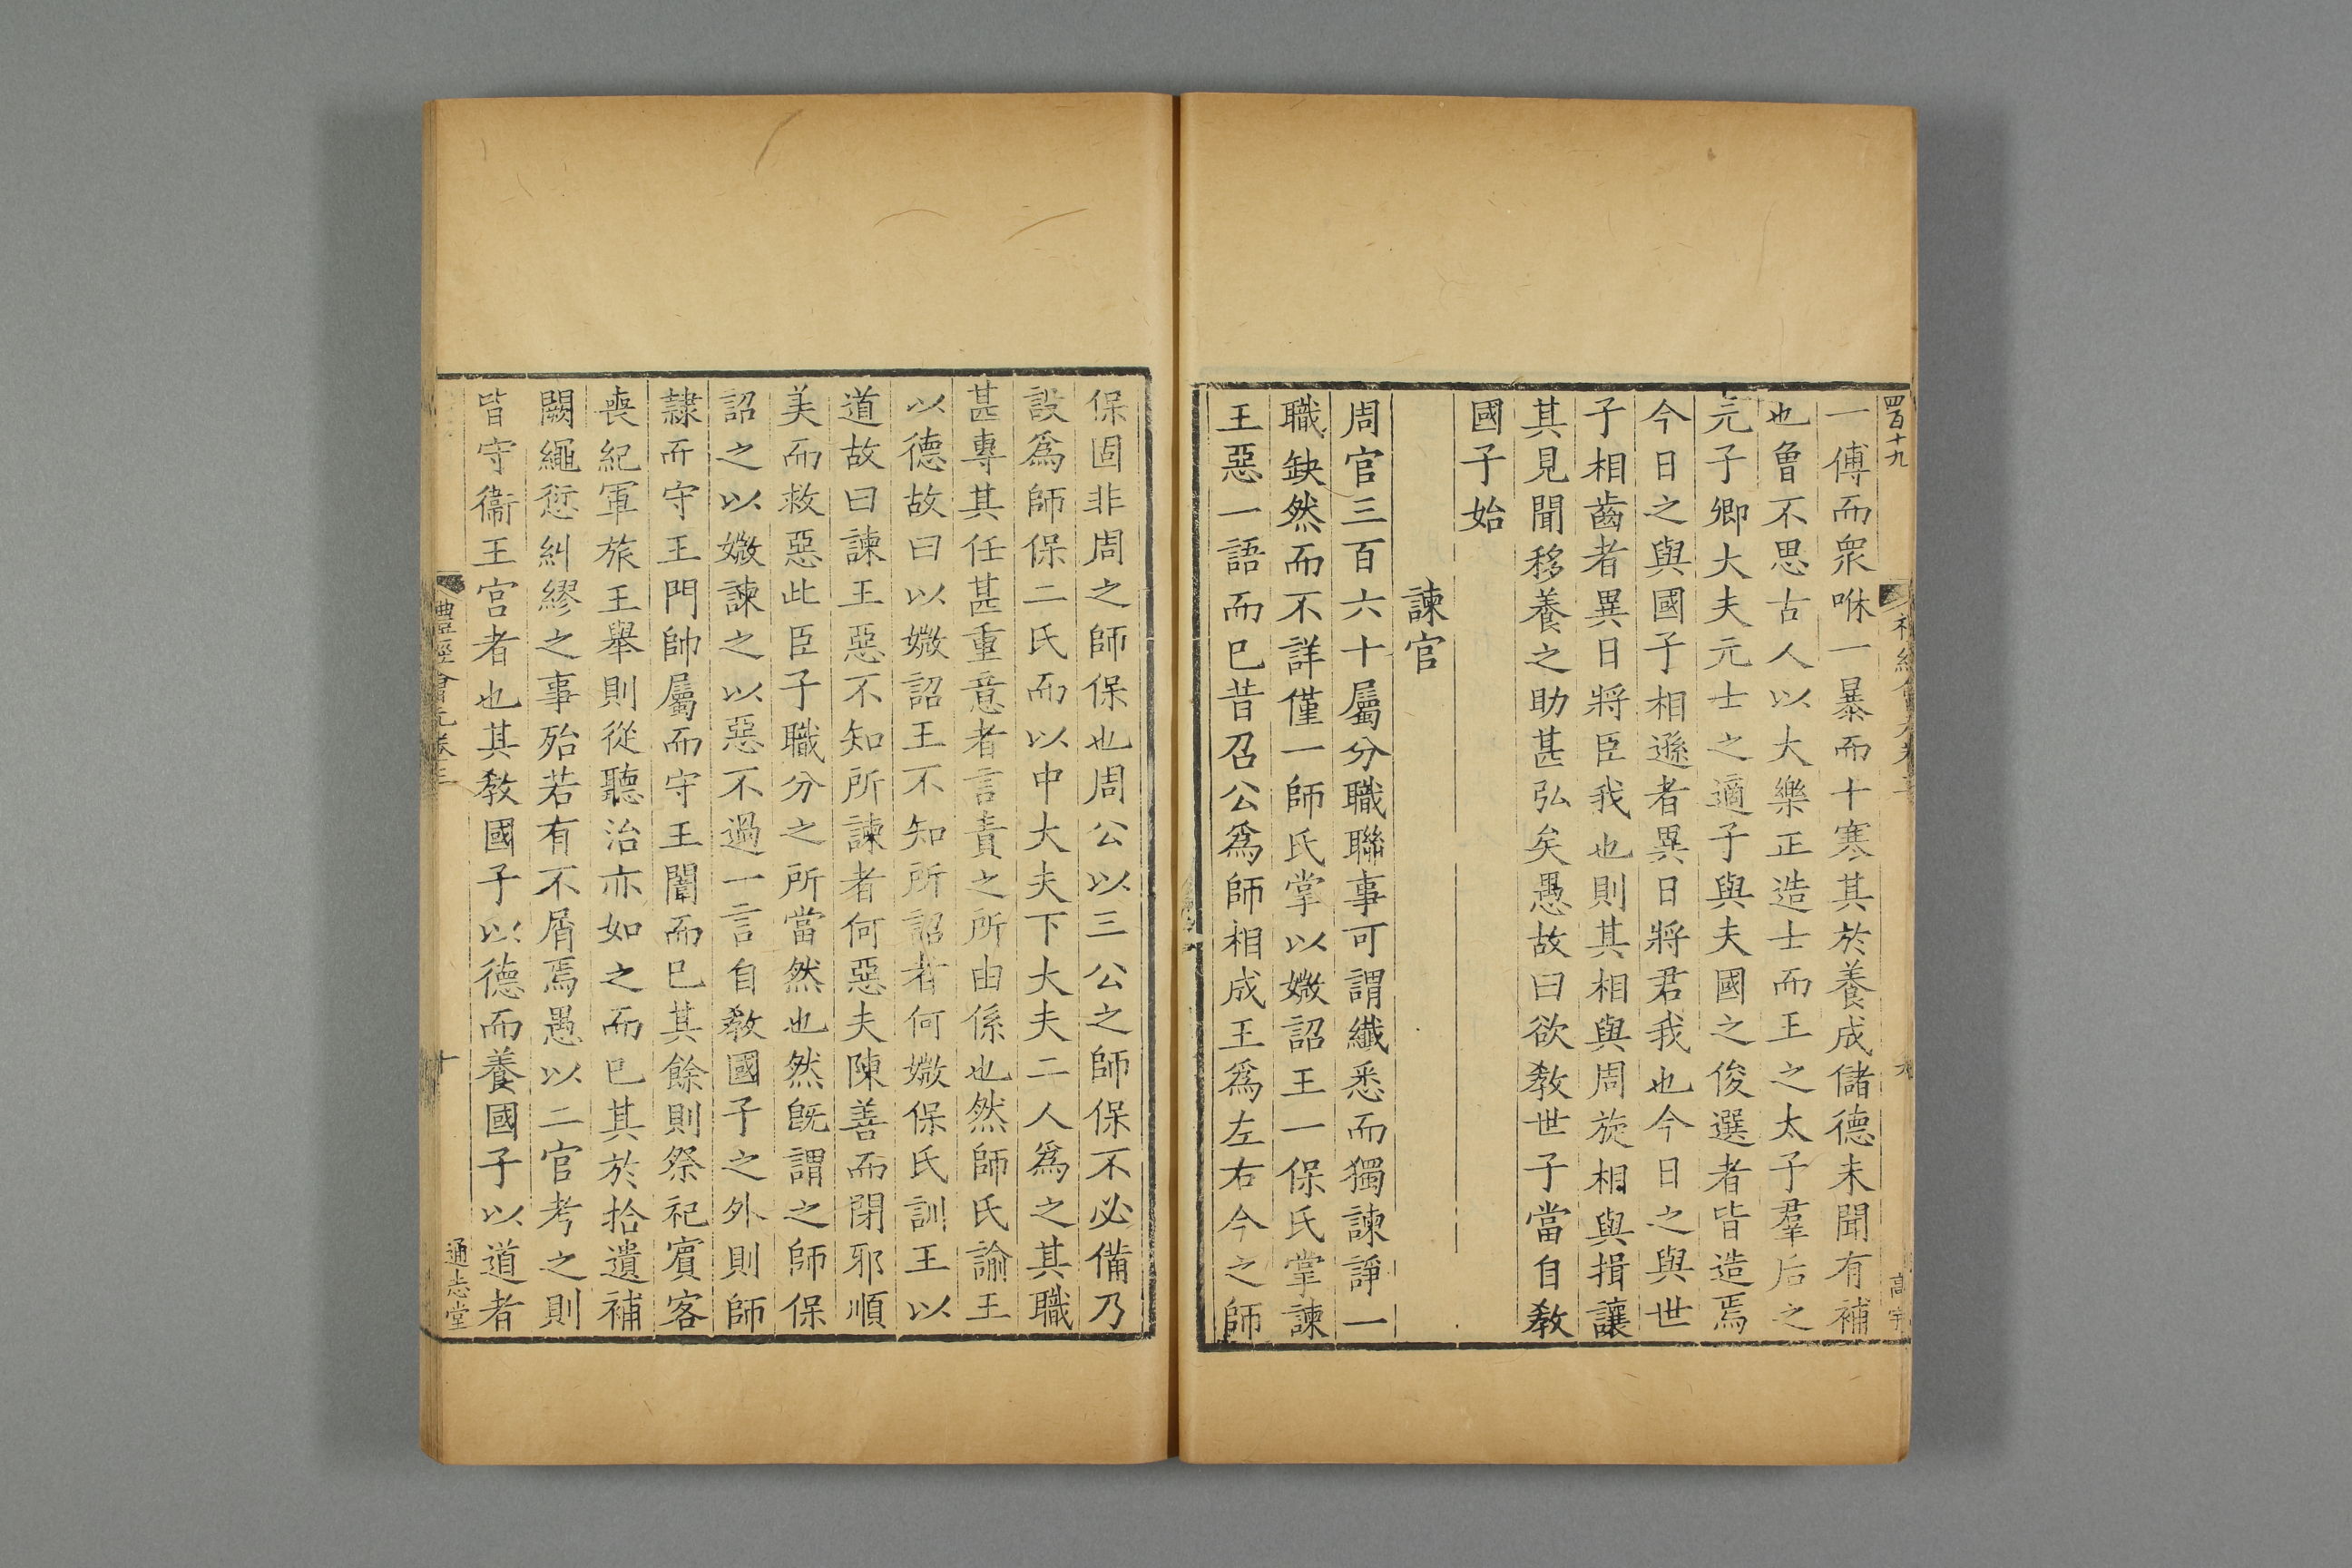 四百十九
一傅而衆咻一暴而十寒其於養成儲德未聞有補
也曾不思古人以大樂正造士而王之太子羣后之
元子卿大夫元士之適子與夫國之俊選者皆造焉
今日之與國子相遜者異日將君我也今日之與世
子相齒者異日將臣我也則其相與周旋相與揖讓
其見聞移養之助甚弘矣愚故曰欲敎世子當自敎
國子始
諫官
周官三百六十屬分職聯事可謂纖悉而獨諫諍一
職缺然而不詳僅一師氏掌以媺詔王一保氏掌諫
王惡一語而已昔召公爲師相成王爲左右今之師
保固非周之師保也周公以三公之師保不必備乃
設爲師保二氏而以中大夫下大夫二人爲之其職
甚專其任甚重意者言責之所由係也然師氏諭王
以德故曰以媺詔王不知所詔者何媺保氏訓王以
道故曰諫王惡不知所諫者何惡夫陳善而閉邪順
美而救惡此臣子職分之所當然也然旣謂之師保
詔之以媺諫之以惡不過一言自敎國子之外則師
隷而守王門帥屬而守王闈而已其餘則祭祀賓客
喪紀軍旅王舉則從聽治亦如之而已其於拾遺補
闕繩愆糾繆之事殆若有不屑焉愚以二官考之則
皆守衞王宮者也其敎國子以德而養國子以道者
禮經會元卷三
十
通志堂